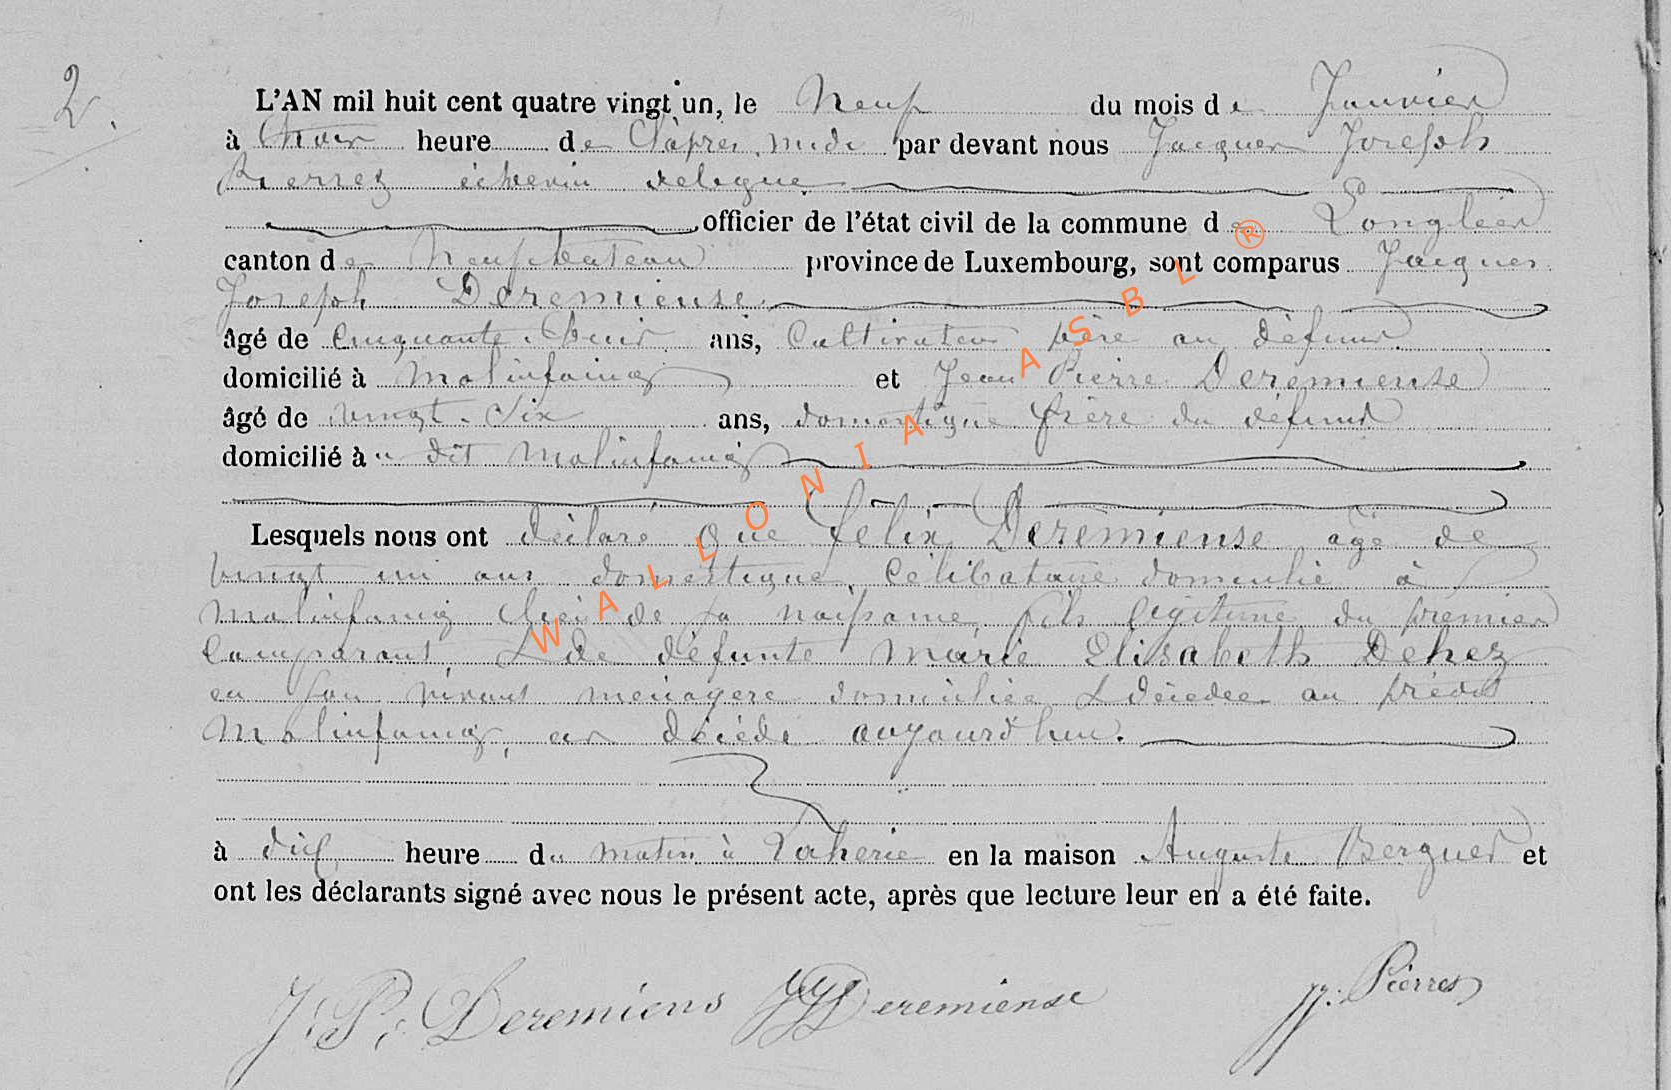 2.
L'AN mil huit cent quatre vingt un, le Neuf du mois de Janvier
à trois heure de l'après midi par devant nous Jacques Joseph
Pierrez échevin delegué
officier de l'état civil de la commune de Longlier
canton de Neufchateau province de Luxembourg, sont comparus Jacques
Joseph Deremiense
âgé de Cinquante ans, Cultivateur père au défunt
domicilié à Molinfaing et Jean Pierre Deremiense
âgé de vingt-six ans, domestique frère du défunt
domicilié à u dit Molinfaing
Lesquels nous ont déclaré que Félix Deremiense agé de
vingt un ans domestique, Célibataire domicilié à
Molinfaing lieu de sa naissance, fils légitime du premier
Comparant, & de défunte Marie Elisabeth Dehez
en son vivant menagere domiciliée & décédée au prédit
Molinfaing, est décédé aujourd'hui.
à dix heure du matin à Laherie en la maison Auguste Berguet et
ont les déclarants signé avec nous le présent acte, après que lecture leur en a été faite.
J. P. Deremiens JJ Deremiense JJ. Pierres
WALLONIA ASBL ®